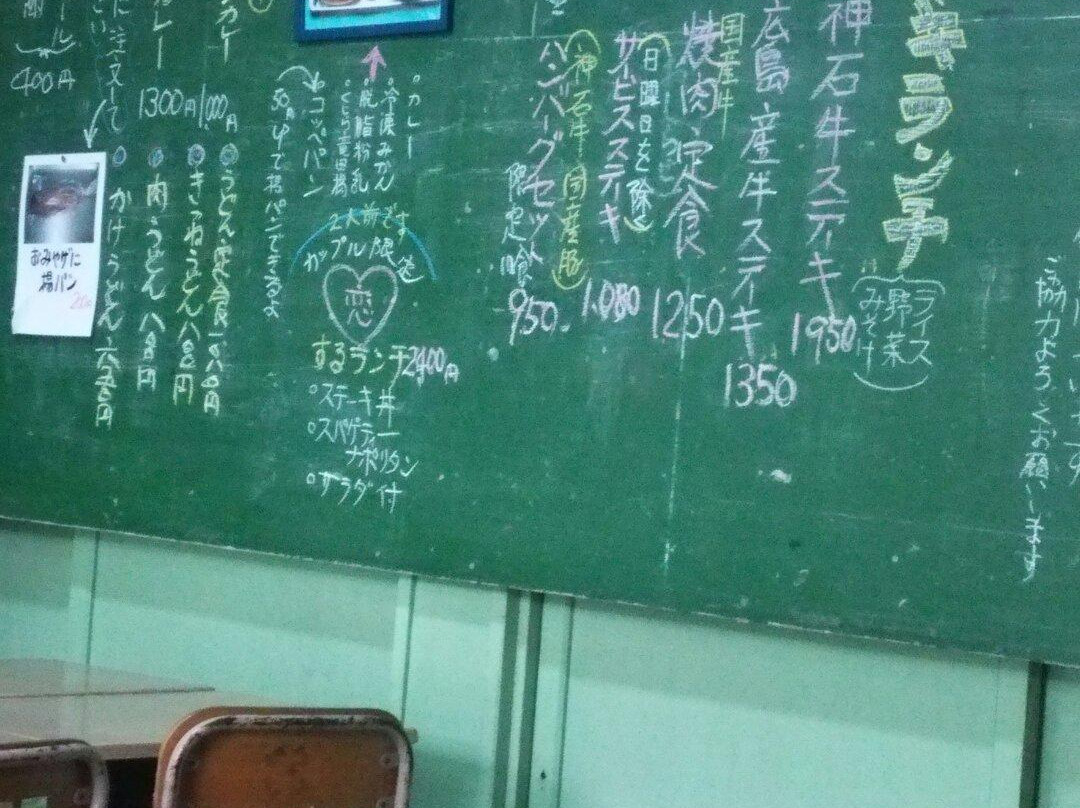 ご協力よろしくお願いします
ランチ
ライス
野菜
みそ汁
神石牛ステーキ 1950
広島産牛ステーキ 1350
国産牛
焼肉定食 1250
(日曜日を除く)
サービスステーキ 1.080
(神石牛 国産豚)
ハンバーグセット 950
限定喰
カレー
冷凍みかん
脱脂粉乳
コッペパン
50円UPで揚パンできるよ
2人前です
カップル限定
恋
するランチ2400円
ステーキ丼
スパゲティー
ナポリタン
サラダ付
カレー
1300円
1000円
うどん定食
きつねうどん 八〇〇円
肉うどん 八〇〇円
かけうどん
おみやげに
揚パン
ご注文して
400円